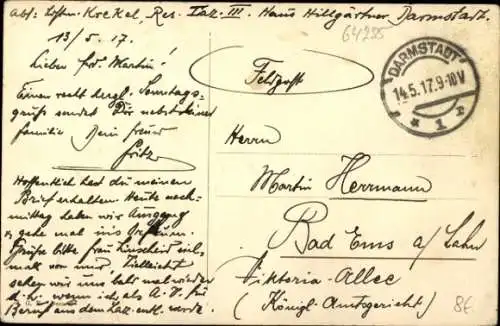 Abs: Krekel, Res. Laz. III. Haus Hillgärtner, Darmstadt.
64235
13/5.17.
Lieber Fr. Martin!
Einen recht herzl. Sonntags-
gruß sendet Dir nebst deiner
Familie Dein Freund
Fritz
Hoffentlich hast du meinen
Brief erhalten. Heute nach-
mittag haben wir Ausgang
gehe mal ins
Grüße bitte Frau ein-
mal von mir. Vielleicht
sehen wir uns bald mal wieder
d. h. wenn ich als A. V. für
Beruf aus dem Laz. entl. werde.
Feldpost
DARMSTADT
14.5.17.9-10V
* 1 r
Herrn
Martin Herrmann
Bad Ems a/Lahn
Viktoria-Allee
(Königl. Amtsgericht)
8€